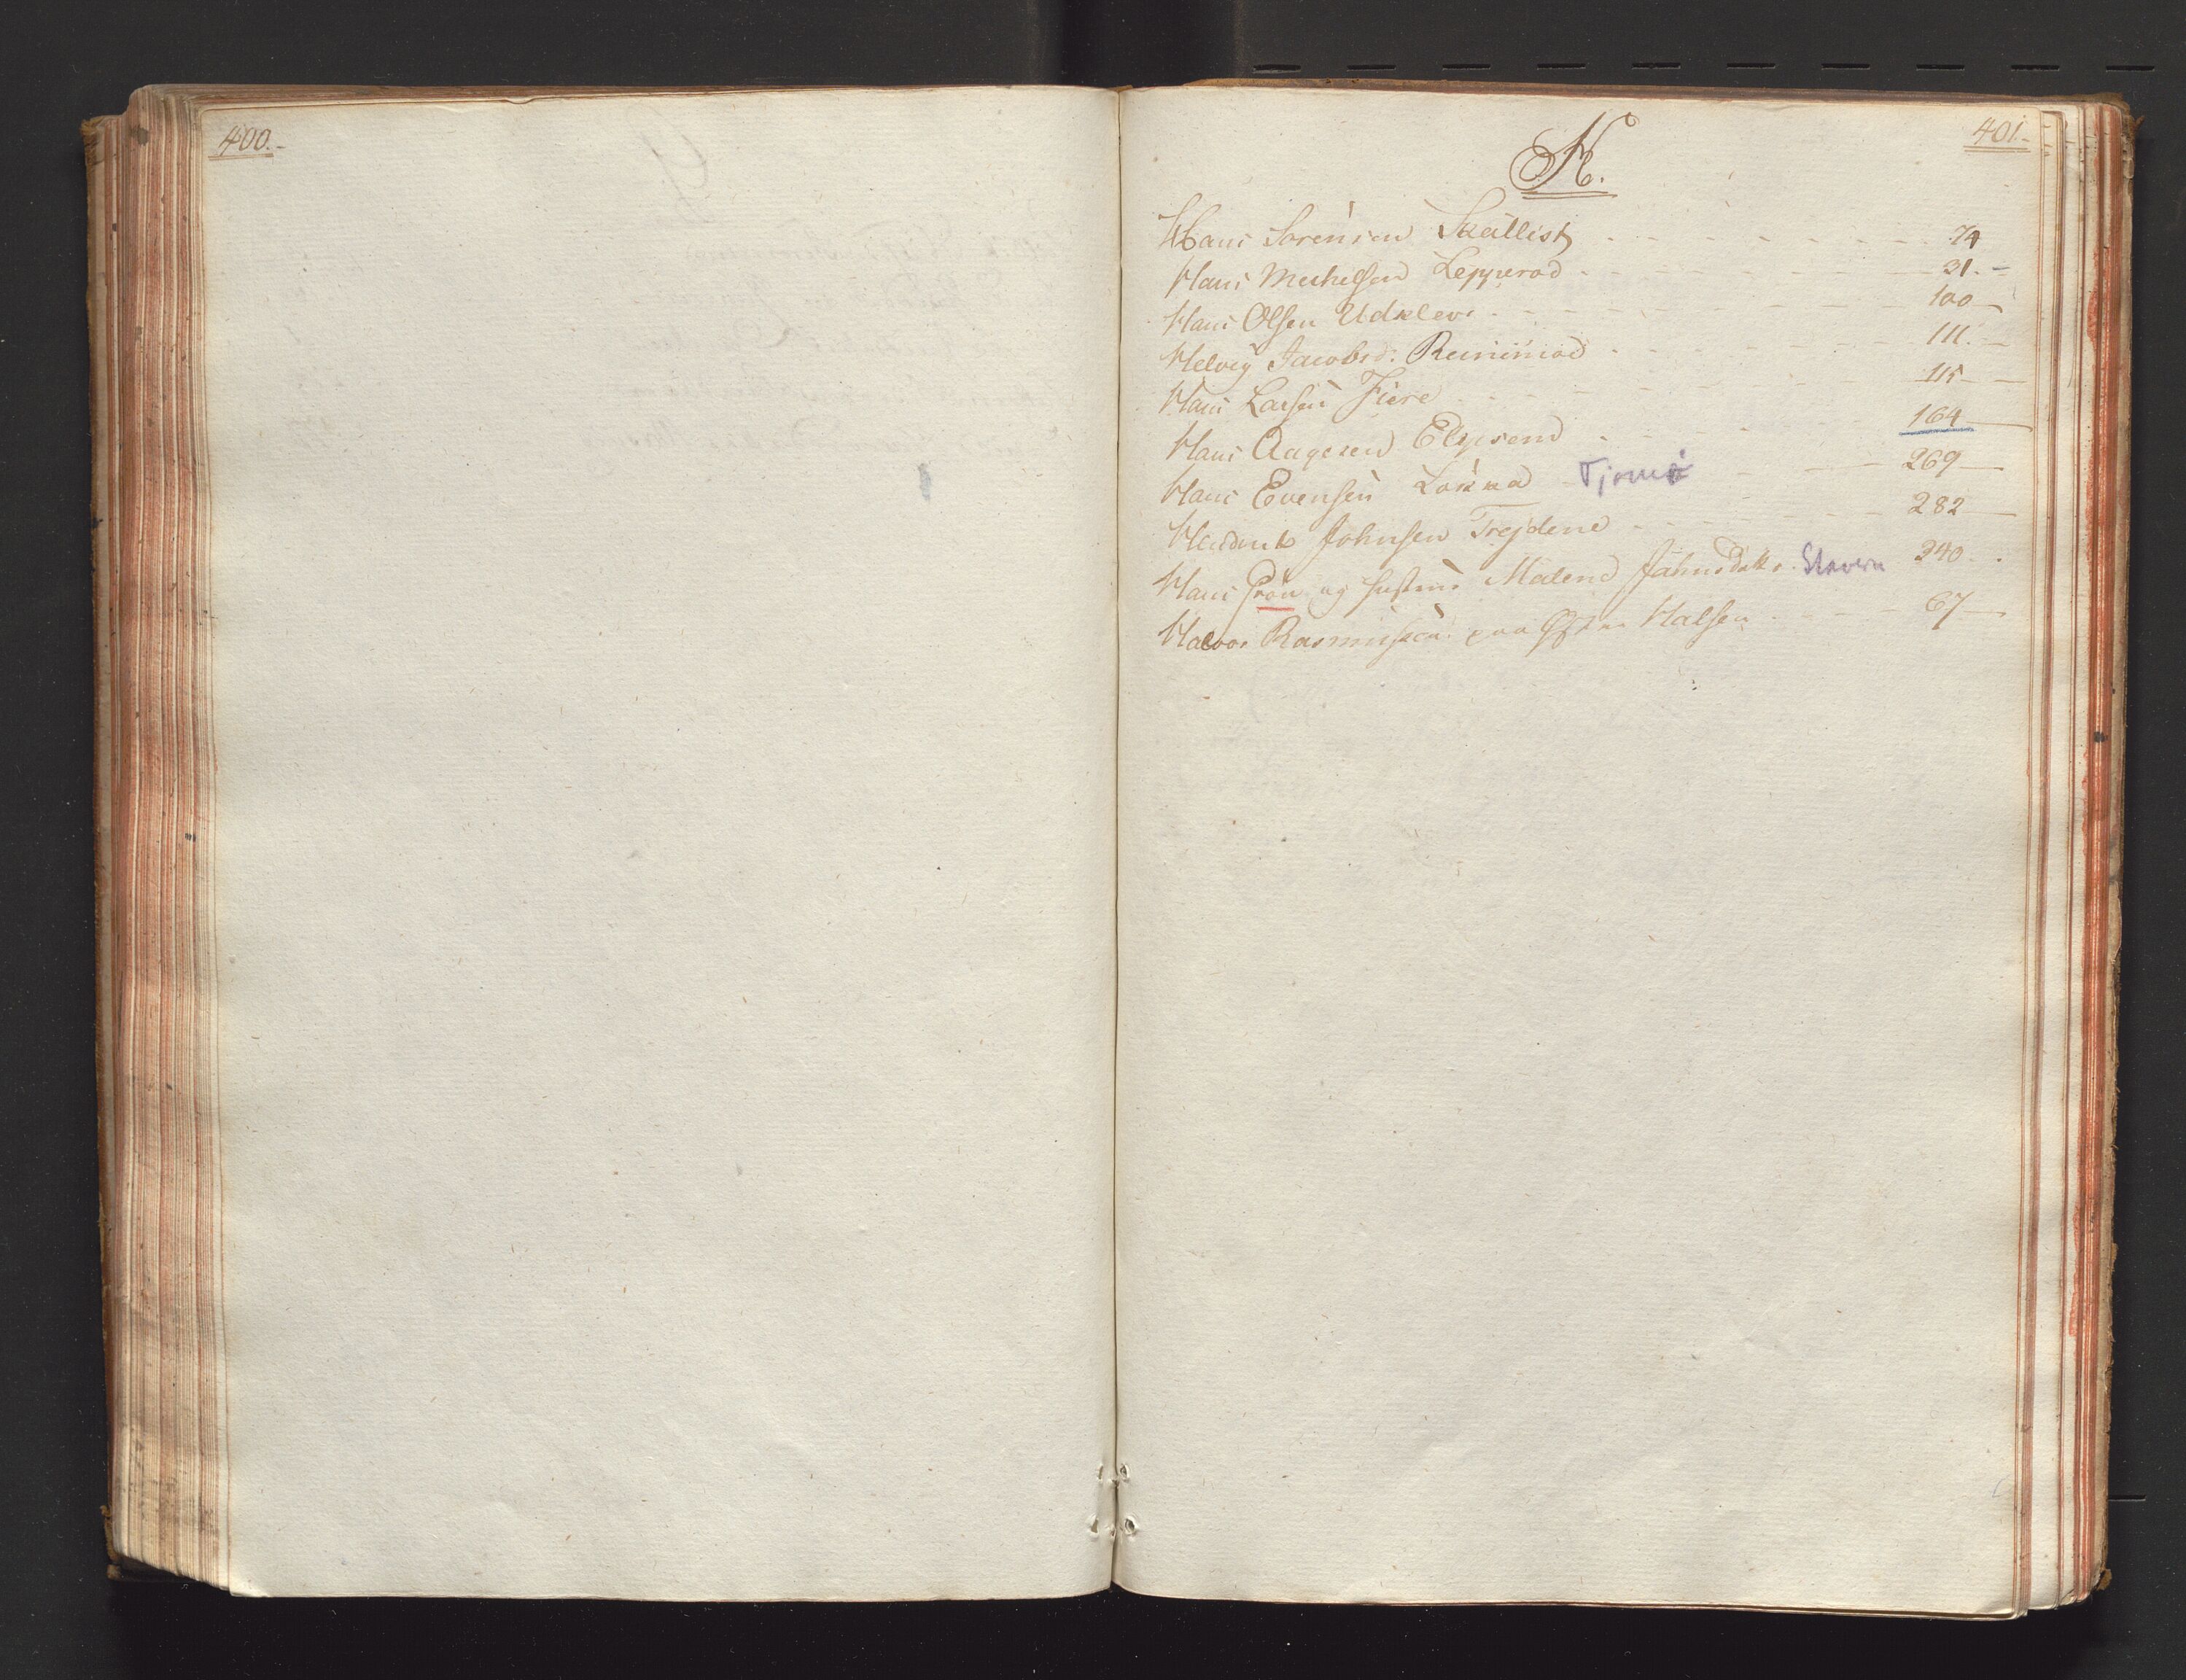 400.-
401.-
H.
Hans Sörensen Skallist - - - 74
Hans Mechelsen Lepperöd - - - 31.-
Hans Olsen Udklev - - - 100
Helvig Jacobsd: - - - 111.-
Hans Larsen Fiere - - - 115
Hans Aagesen - - - 164
Hans Evensen Löcka Tjømø - - - 269
Hendrick Johnsen Trejdene - - - 282
Hans Grön og Hustrue Malene Jahnsdattr. Stavern 240.
Halvor Rasmussen paa Østre Halsen - - - 67